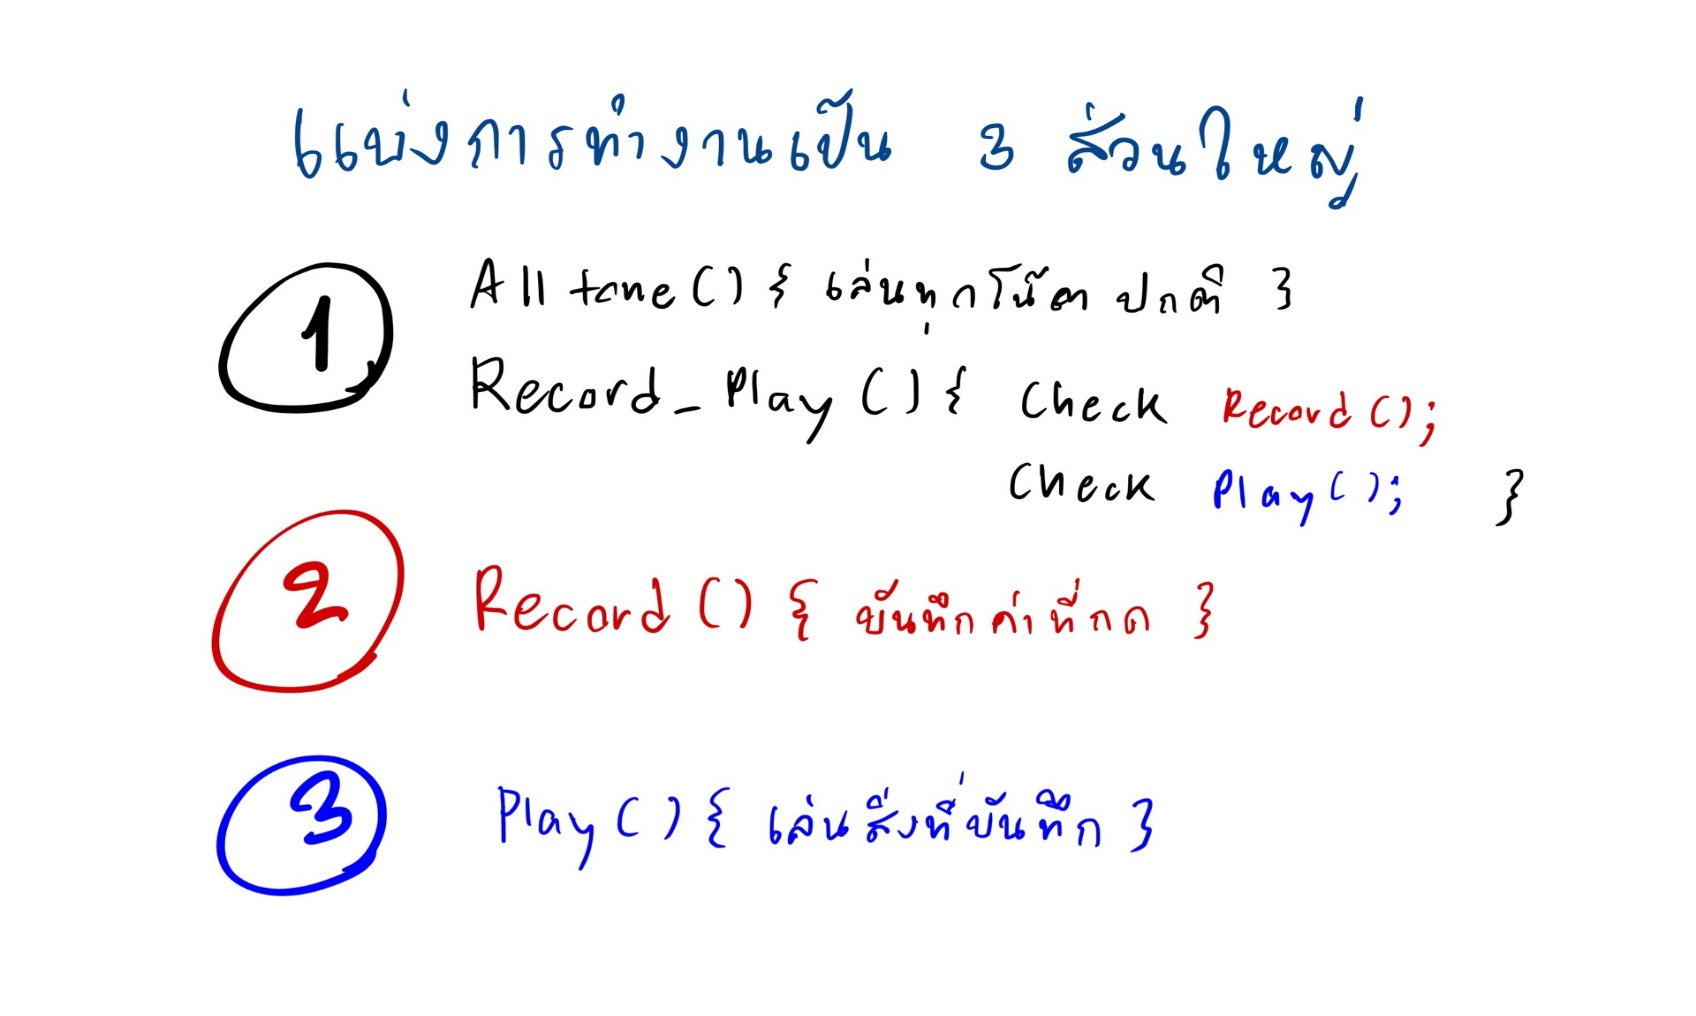 แบ่งการทำงานเป็น 3 ส่วนใหญ่
1
Alltone() { เล่นทุกโน๊ตปกติ }
Record_Play() { Check Record();
Check Play(); }
2
Record() { บันทึกค่าที่กด }
3
Play() { เล่นสิ่งที่บันทึก }